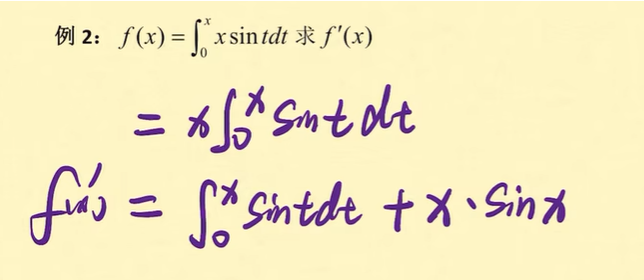 例 2： f(x) = ∫₀ˣ x sin tdt 求 f′(x)
= x∫₀ˣ sint dt
f′(x) = ∫₀ˣ sintdt + x · sinx